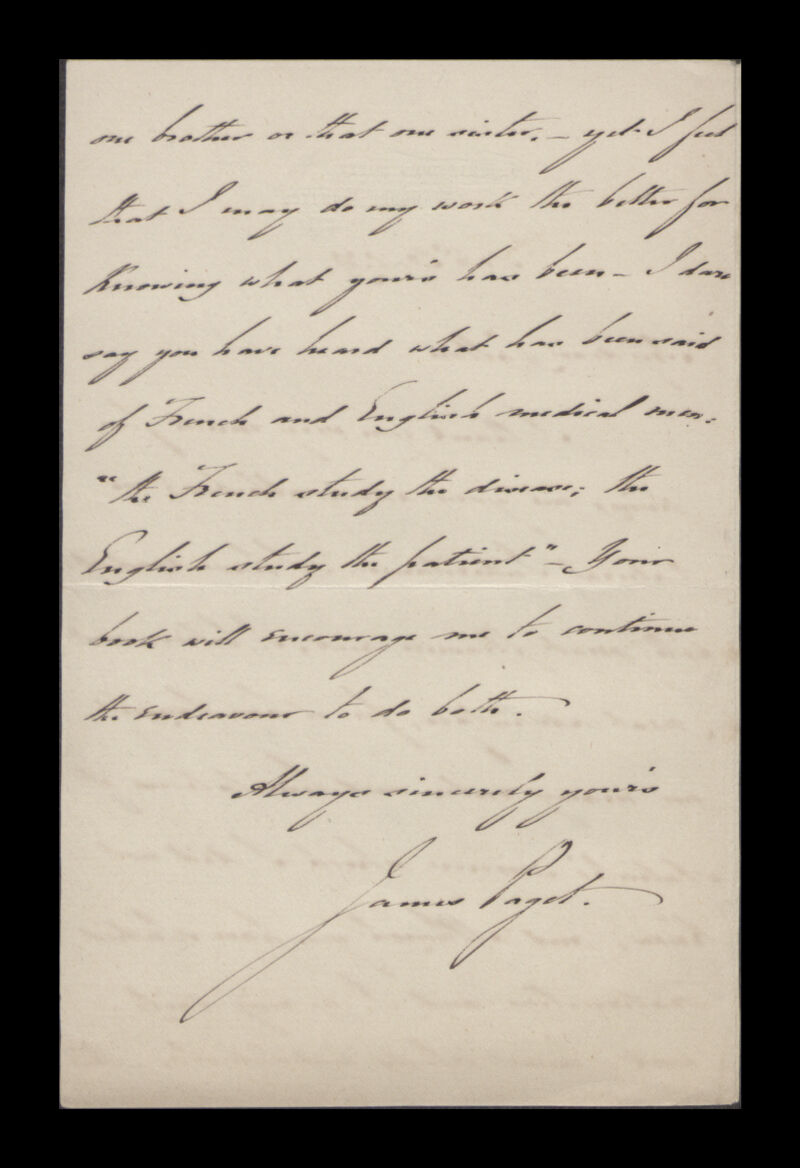 one brother or that one sister. – yet I feel
that I may do my work the better for
Knowing what your's has been – I dare
say you have heard what has been said
of French and English medical men:
"the French study the disease; the
English study the patient" – Your
book will encourage me to continue
the endeavour to do both.
Always sincerely your's
James Paget.